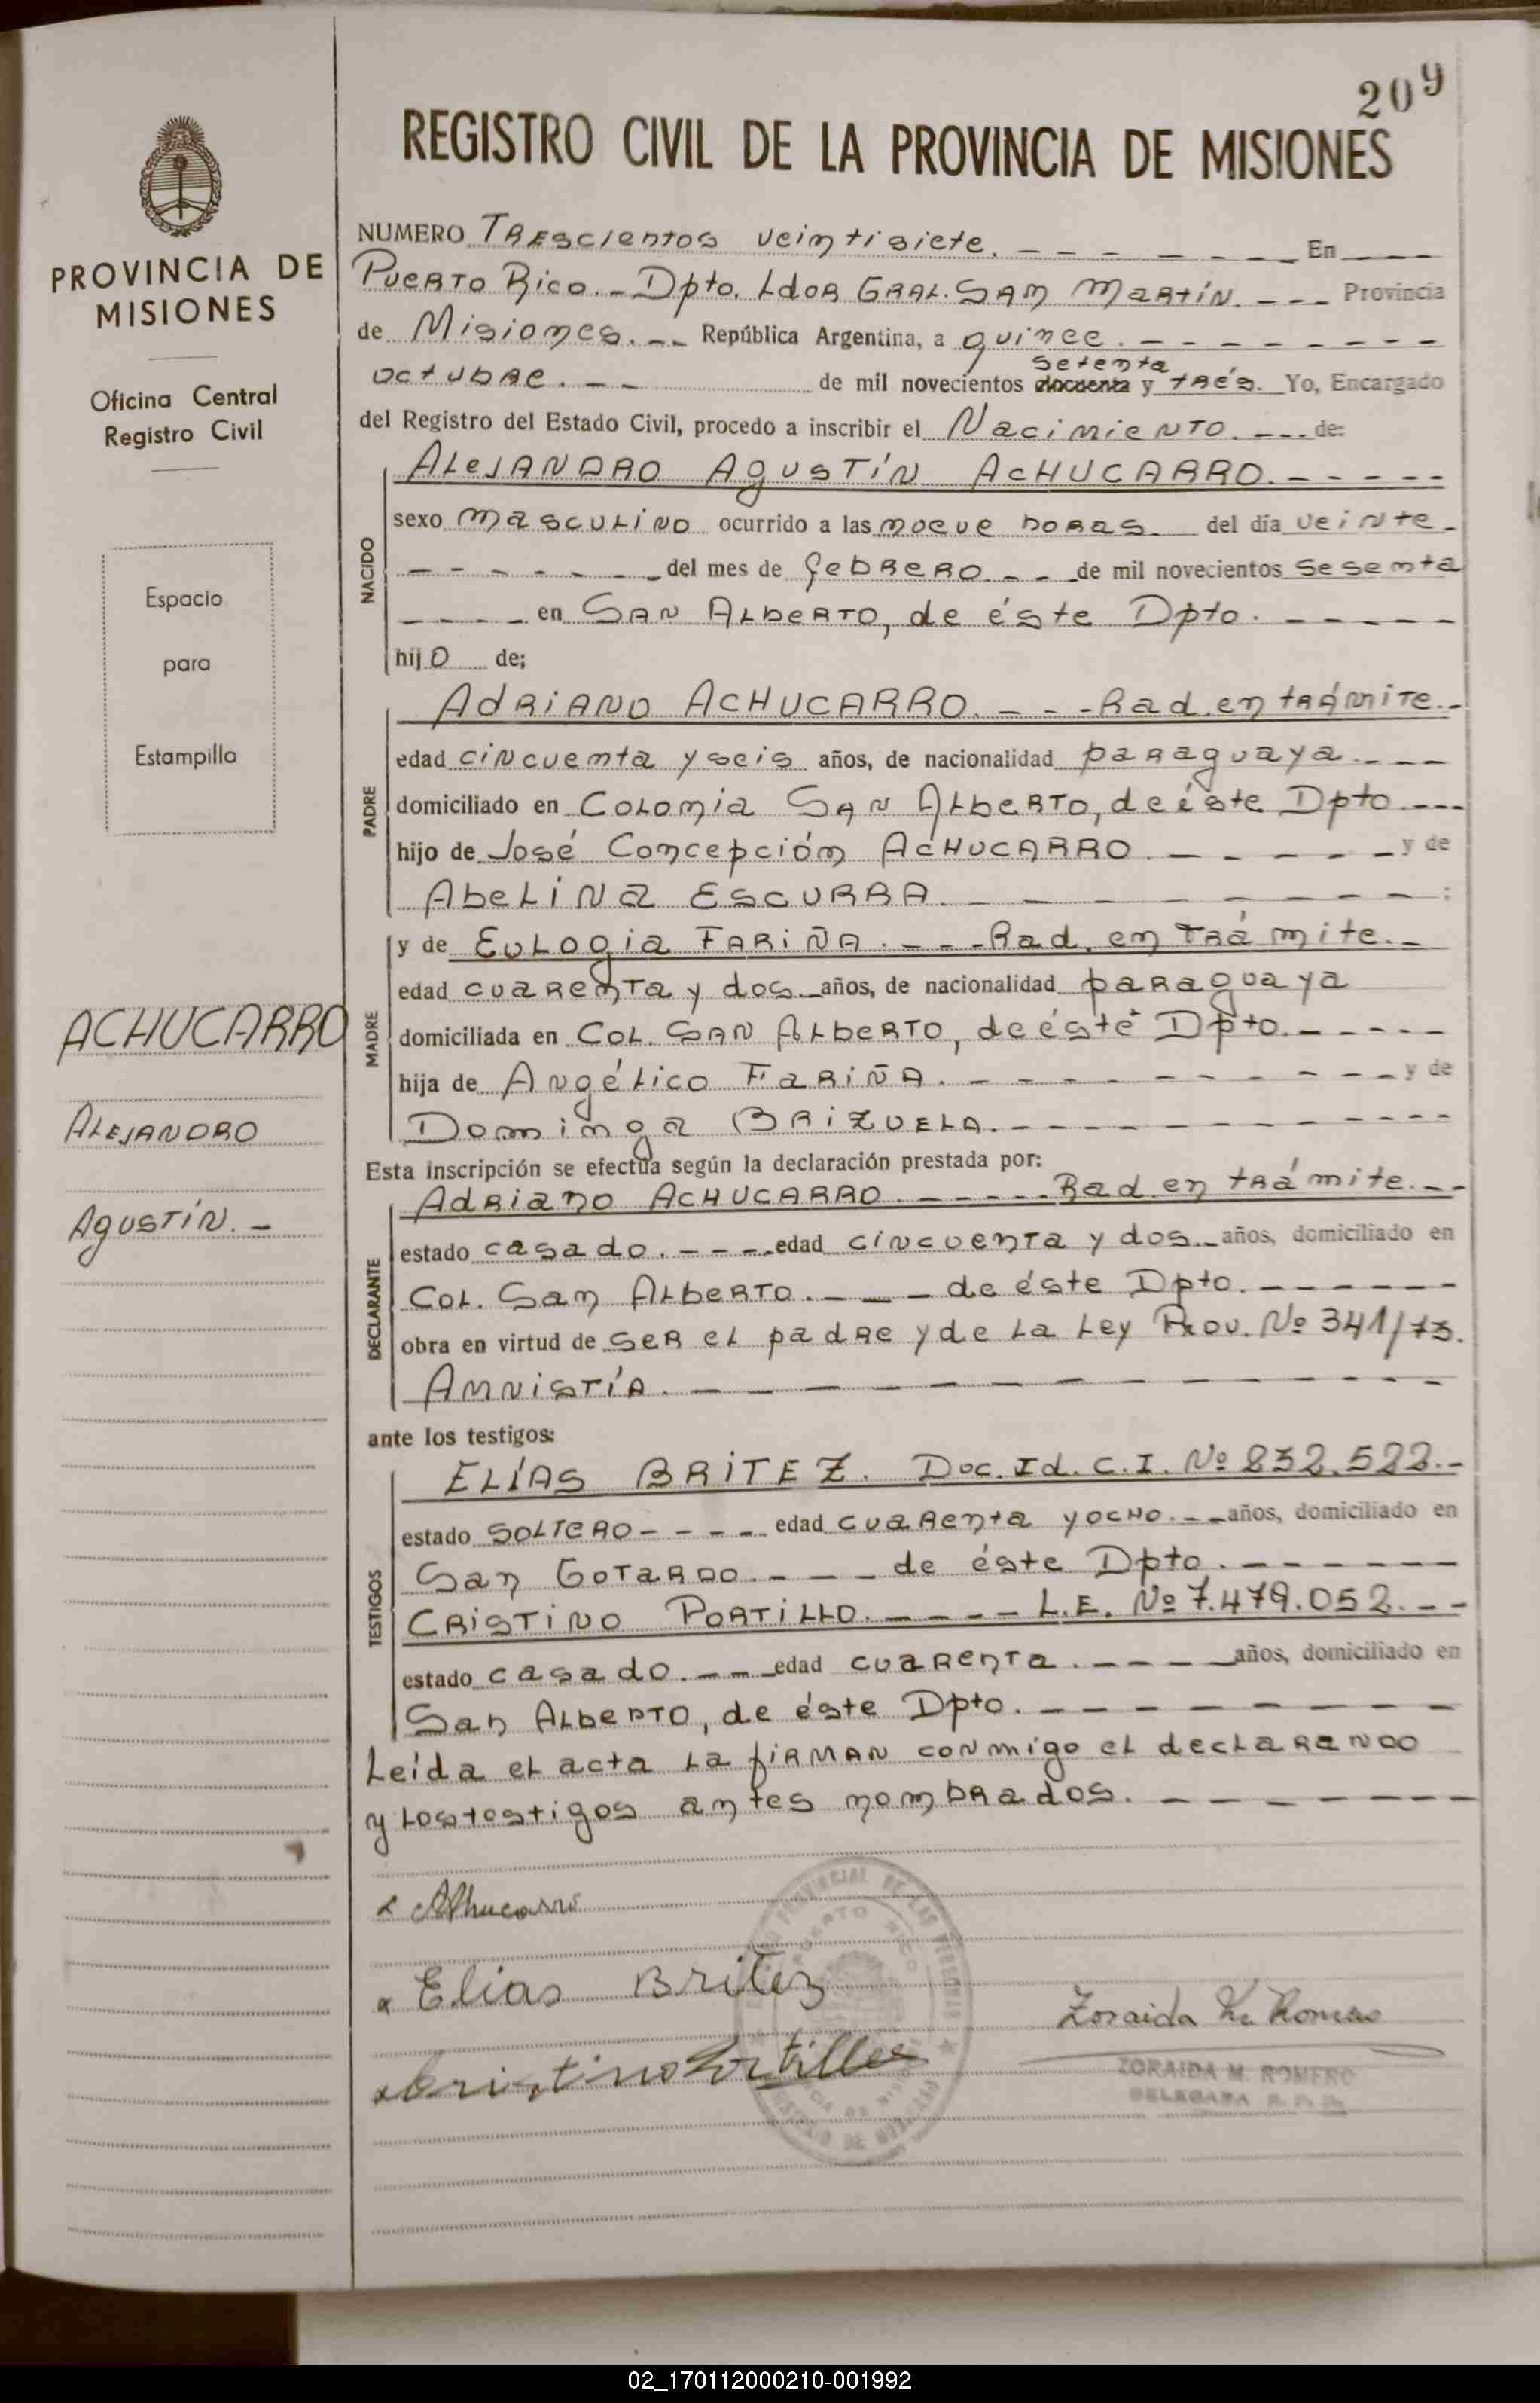 209
REGISTRO CIVIL DE LA PROVINCIA DE MISIONES
PROVINCIA DE
MISIONES
Oficina Central
Registro Civil
Espacio
para
Estampilla
ACHUCARRO
ALEJANDRO
AGUSTÍN.-
NUMERO Trescientos veintisiete. - - - - - - - En
Puerto Rico.- Dpto. Ldor Gral. San Martín. - - - Provincia
de Misiones. - - República Argentina, a quince. - - - - - - - -
setenta
octubre. - - de mil novecientos cincuenta y trés. Yo, Encargado
del Registro del Estado Civil, procedo a inscribir el Nacimiento. - - - de:
NACIDO
ALEJANDRO AGUSTÍN ACHUCARRO. - - - - -
sexo masculino ocurrido a las nueve horas. del día veinte -
- - - - - - - del mes de febrero. - - de mil novecientos sesenta
- - - - en San Alberto, de éste Dpto. - - - - -
hijo de;
PADRE
ADRIANO ACHUCARRO. - - - Rad. en trámite.-
edad cincuenta y seis años, de nacionalidad paraguaya. - - -
domiciliado en Colonia San Alberto, de éste Dpto. - - -
hijo de José Concepción ACHUCARRO - - - - - - y de
Abelina ESCURRA. - - - - - - - - ;
MADRE
y de EULOGIA FARIÑA. - - - Rad. en trámite. -
edad cuarenta y dos. años, de nacionalidad paraguaya
domiciliada en Col. San Alberto, de éste Dpto. - - - - -
hija de Angélico FARIÑA. - - - - - - - - - - y de
Dominga BRIZUELA. - - - - - - - - - - -
Esta inscripción se efectúa según la declaración prestada por:
DECLARANTE
ADRIANO ACHUCARRO. - - - - - Rad. en trámite. - -
estado casado. - - - - edad cincuenta y dos. años, domiciliado en
Col. San Alberto. - - - de éste Dpto. - - - - - -
obra en virtud de ser el padre y de la Ley Prov. Nº 341/73.
Amnistía. - - - - - - - - - - - - -
ante los testigos:
TESTIGOS
ELÍAS BRITEZ. Doc. Id. C.I. Nº 232.522.-
estado soltero - - - - edad cuarenta y ocho. - - años, domiciliado en
San Gotardo. - - - de éste Dpto. - - - - - -
CRISTINO PORTILLO. - - - - L.E. Nº 7.479.052. - -
estado casado. - - - edad cuarenta. - - - - años, domiciliado en
San Alberto, de éste Dpto. - - - - - - - -
Leída el acta la firman conmigo el declarando
y los testigos antes nombrados. - - - - - - - -
x AAhucarro
x Elias Britez
x Cristino Portillo
Zoraida M. Romero
ZORAIDA M. ROMERO
DELEGADA R. P. P.
PUERTO RICO
02_170112000210-001992